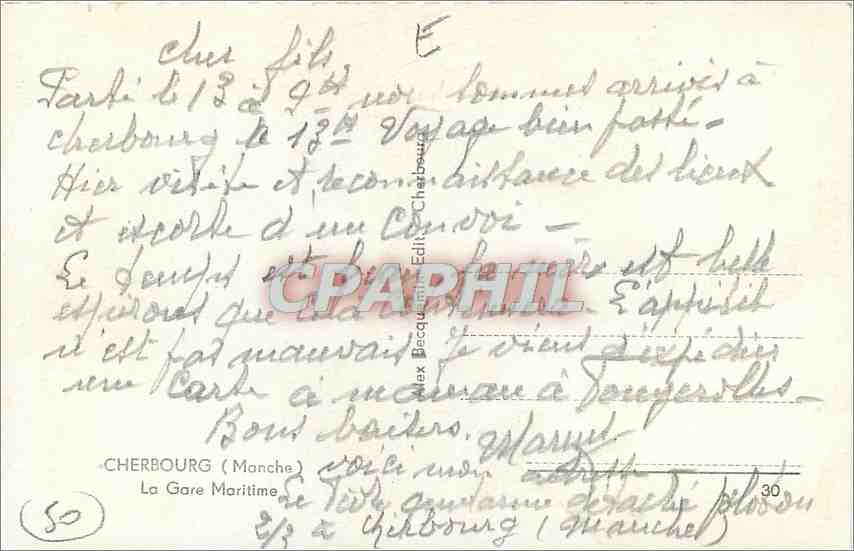 E
cher fils
Parti le 13 à 9h nous sommes arrivés à
cherbourg le 13h Voyage bien passé -
Hier visite et reconnaissance des lieux
et escorte d'un convoi -
Le temps est beau la mer est belle
espérons que cela continuera. L'appétit
n'est pas mauvais. Je viens d'expédier
une carte à maman à Fougerolles -
Bons baisers. Marcel
voici mon adresse -
Le gendarme détaché peloton
2/3 à Cherbourg (Manche)
CHERBOURG (Manche)
La Gare Maritime
30
50
Alex Becquemin Edit. Cherbourg
CPAPHIL